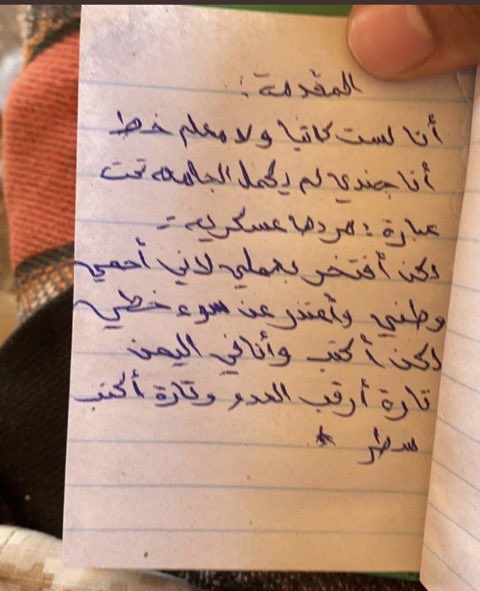 المقدمة :
أنا لست كاتبا ولا معلم خط
أنا جندي لم يكمل الجامعه تحت
عبارة : مردها عسكريه -
لكن أفتخر بعملي لاني أحمي
وطني وأعتذر عن سوء خطي
لكن أكتب وأنا في اليمن
تارة أرقب العدو وتارة أكتب
سطر